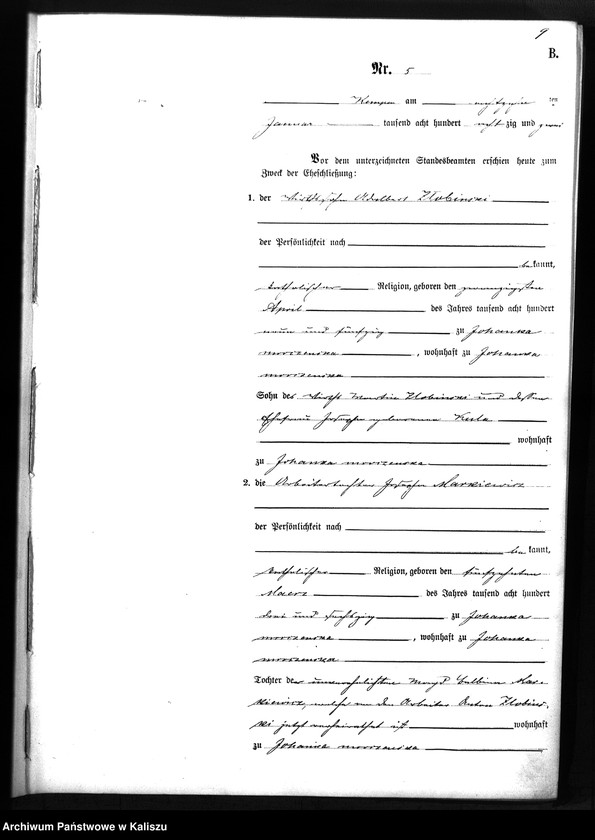 9
B.
Nr. 5
Kempen am achtzehn ten
Januar tausend acht hundert acht zig und zwei
Vor dem unterzeichneten Standesbeamten erschien heute zum
Zweck der Eheschließung:
1. der Adalbert Zlobinski
der Persönlichkeit nach
be kannt,
katholischer Religion, geboren den zwanzigsten
April des Jahres tausend acht hundert
neun und fünfzig zu Johanka
mroczenska, wohnhaft zu Johanka
mroczenska
Sohn des Wirth Martin Zlobinski und dessen
Ehefrau Josepha geborenen Kula
wohnhaft
zu Johanka mroczenska
2. die Arbeitertochter Josepha Markiewicz
der Persönlichkeit nach
be kannt,
katholischer Religion, geboren den fünfzehnten
Maerz des Jahres tausend acht hundert
drei und sechszig zu Johanka
mroczenska, wohnhaft zu Johanka
mroczenska
Tochter der unverehelichten Magd Balbina Mar-
kiewicz, welche an den Arbeiter Anton Zlobins-
ki jetzt verheirathet ist wohnhaft
zu Johanka mroczenska
Archiwum Państwowe w Kaliszu